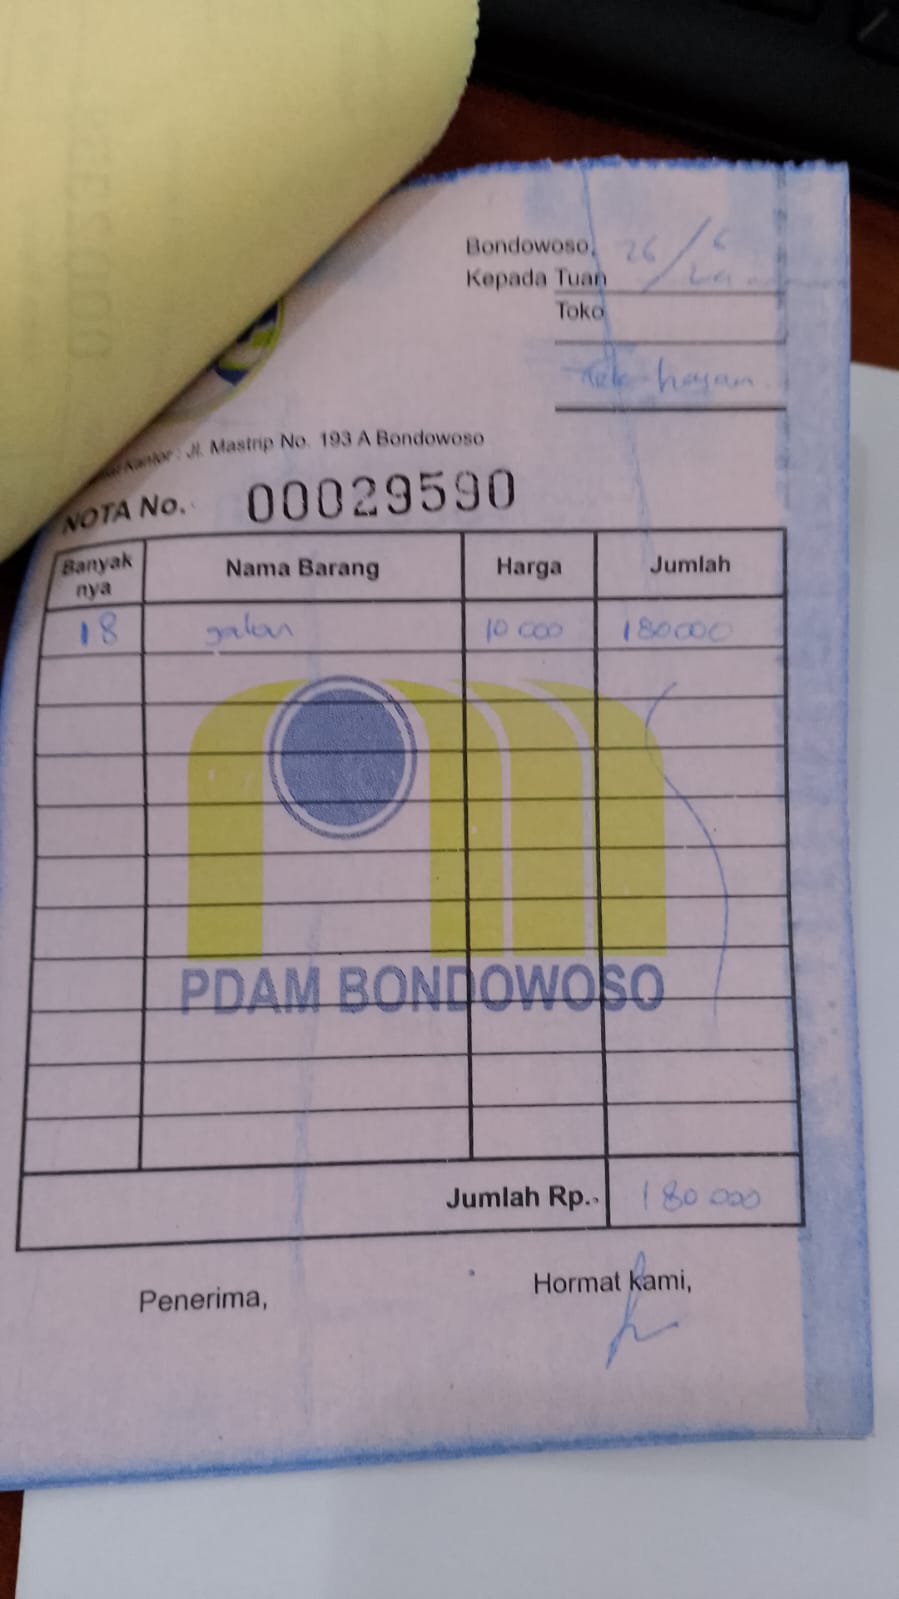 Bondowoso, 26/6
Kepada Tuan
Toko
hasan
Kantor : Jl. Mastrip No. 193 A Bondowoso
NOTA No. 00029590
Banyak nya Nama Barang Harga Jumlah
18 galon 10 000 180000
PDAM BONDOWOSO
Jumlah Rp. 180 000
Penerima, Hormat kami,